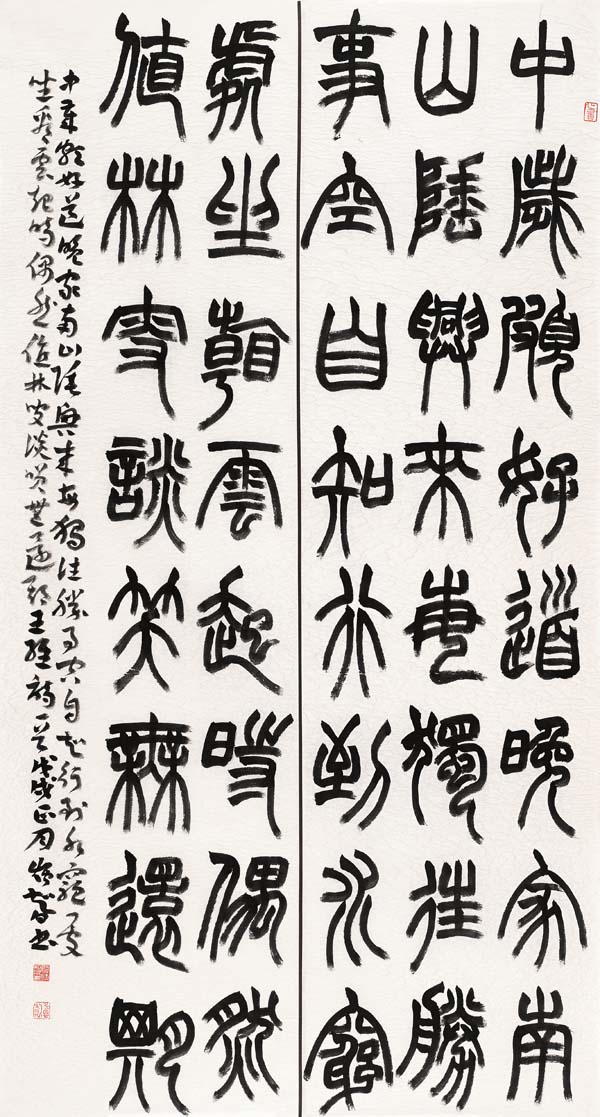 中歲頗好道晚家南
山陲興來每獨往勝
事空自知行到水窮
處坐看雲起時偶然
値林叟談笑無還期
中歲頗好道晚家南山陲興來每獨往勝事空自知行到水窮處
坐看雲起時偶然值林叟談笑無還期王維詩一首戊戌正月書